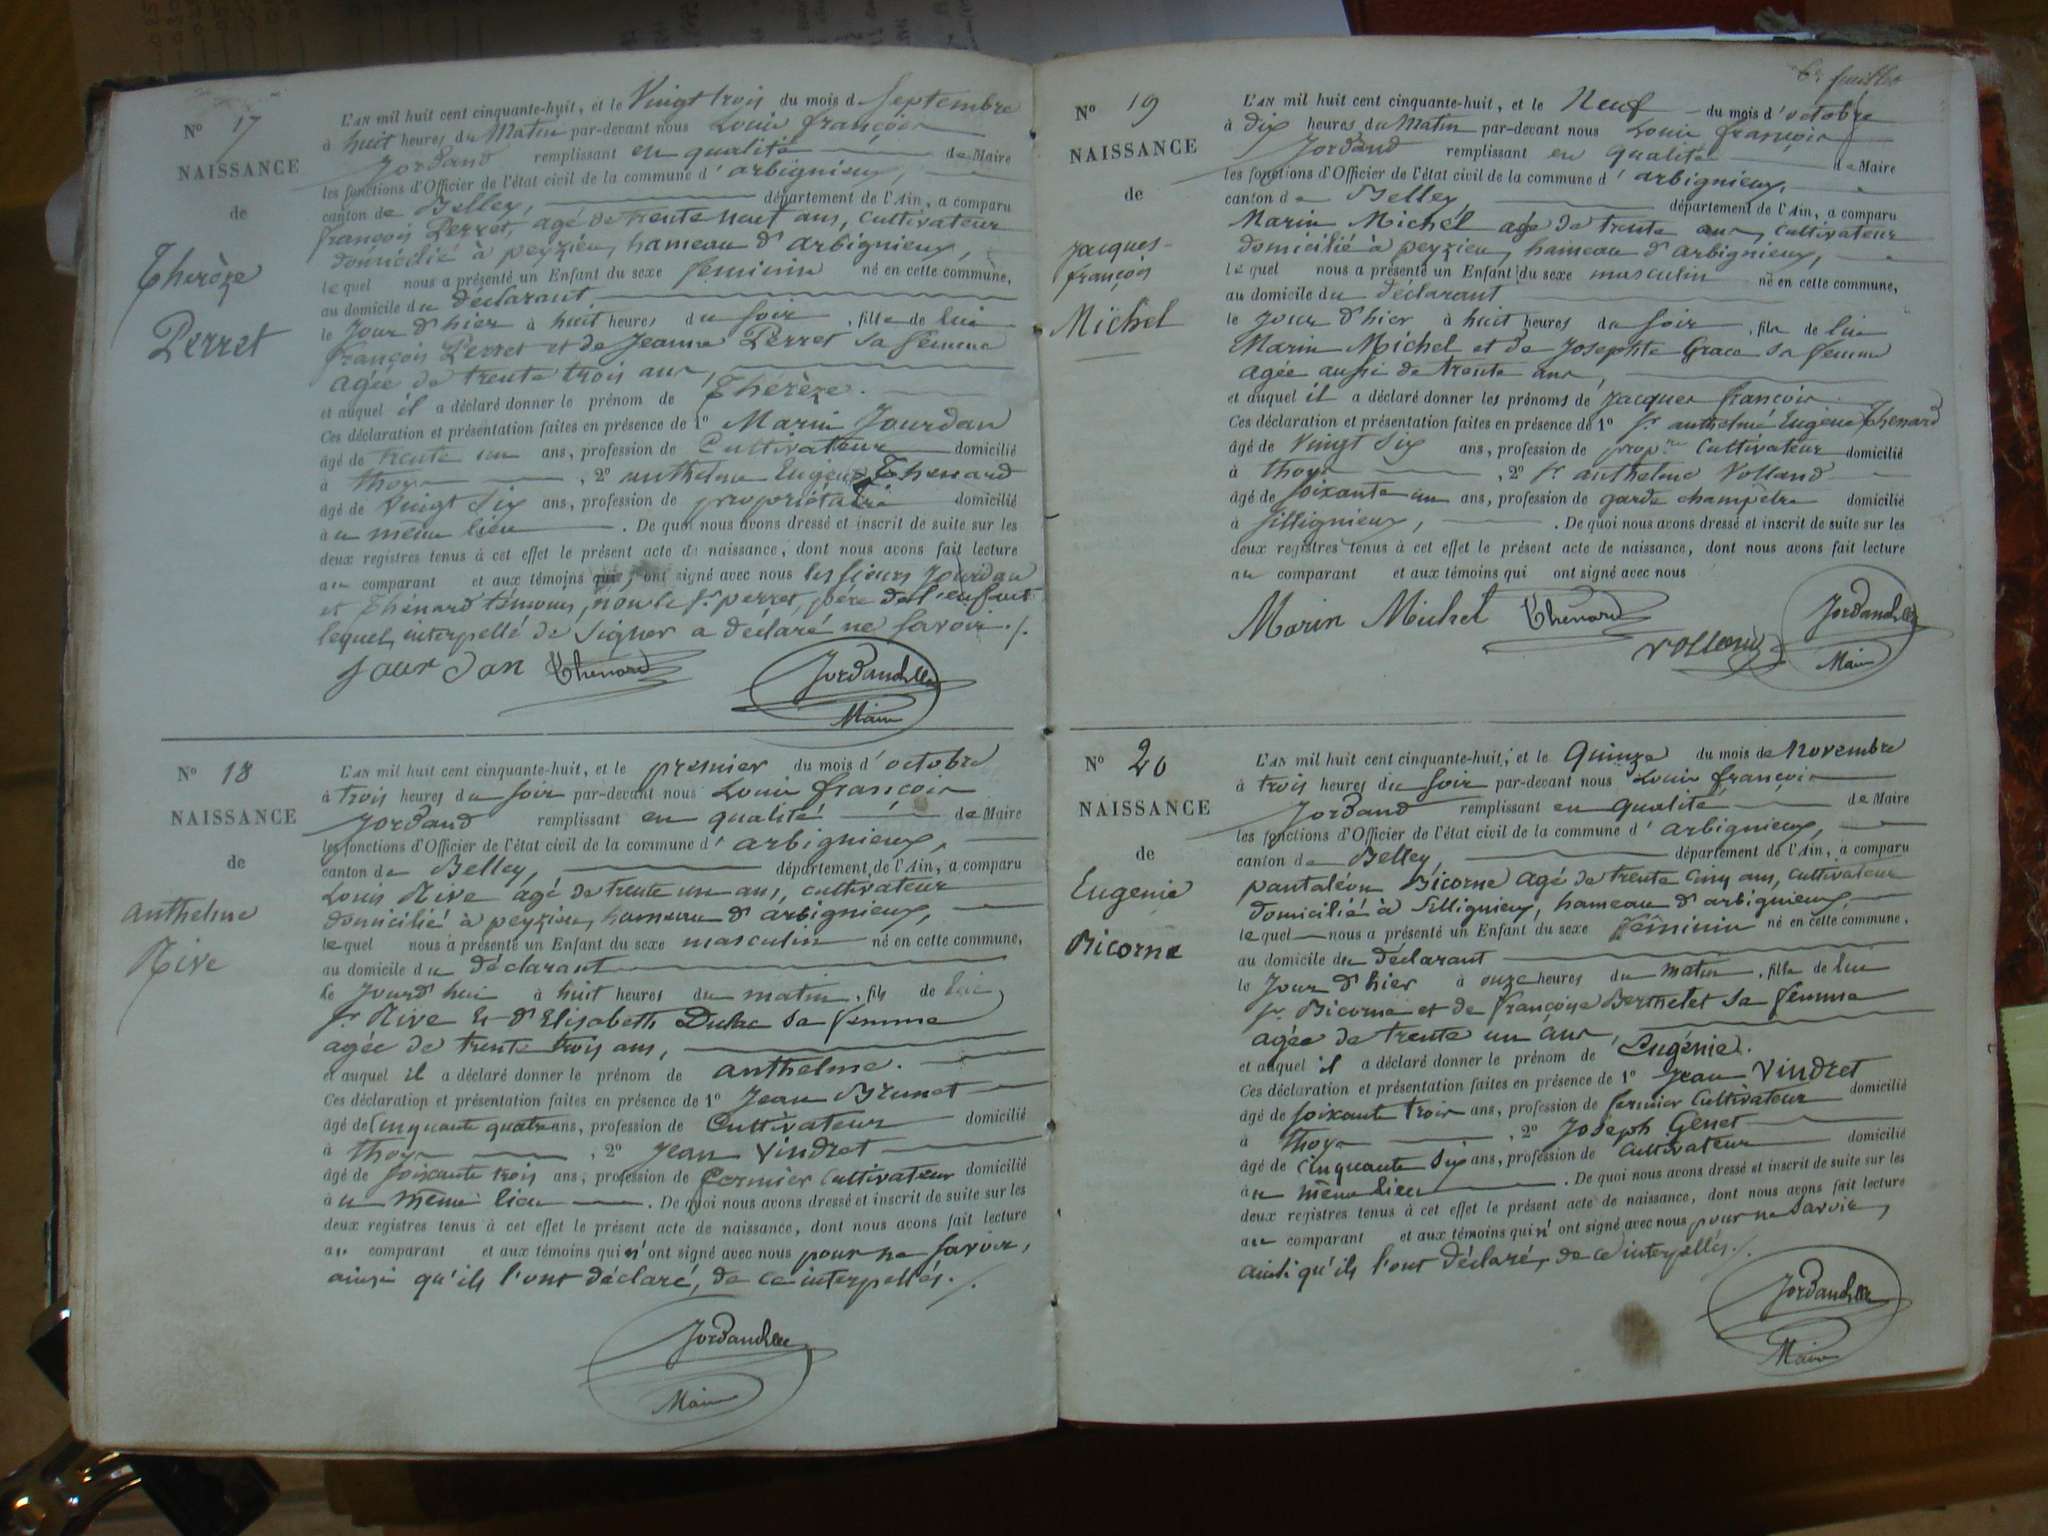 N° 17
NAISSANCE
de
Therèze
Perret
L'AN mil huit cent cinquante-huit, et le Vingt trois du mois d Septembre
à huit heures du Matin par-devant nous Louis françois
Jordand remplissant en qualité de Maire
les fonctions d'Officier de l'état civil de la commune d' arbignieux,
canton de Belley, département de l'Ain, a comparu
françois Perret, agé de trente neuf ans, cultivateur
domicilié à peyzieu, hameau d'arbignieux,
le quel nous a présenté un Enfant du sexe féminin né en cette commune,
au domicile du déclarant
le Jour d'hier à huit heures du soir, fille de lui
françois Perret et de Jeanne Perret sa femme
agée de trente trois ans,
et auquel il a déclaré donner le prénom de Thérèze.
Ces déclaration et présentation faites en présence de 1° Marin Jourdan
âgé de trente un ans, profession de Cultivateur domicilié
à thoys, 2° anthelme Eugène Thenard
âgé de Vingt six ans, profession de propriétaire domicilié
au même lieu. De quoi nous avons dressé et inscrit de suite sur les
deux registres tenus à cet effet le présent acte de naissance, dont nous avons fait lecture
au comparant et aux témoins qui, ont signé avec nous les sieurs Jourdan
et Thénard témoins, non le Sr perret, père de l'enfant
lequel, interpellé de signer a déclaré ne savoir ./.
Jourdan Thenard Jordand
Maire
N° 18
NAISSANCE
de
anthelme
Rive
L'AN mil huit cent cinquante-huit, et le premier du mois d' octobre
à trois heures du soir par-devant nous Louis françois
Jordand remplissant en qualité de Maire
les fonctions d'Officier de l'état civil de la commune d' arbignieux,
canton de Belley, département de l'Ain, a comparu
Louis Rive agé de trente un ans, cultivateur
domicilié à peyzieu, hameau d'arbignieux,
le quel nous a présenté un Enfant du sexe masculin né en cette commune,
au domicile du déclarant
le Jourd'hui à huit heures du matin, fils de lui
Sr Rive et d'Elisabeth Dulac sa femme
agée de trente trois ans,
et auquel il a déclaré donner le prénom de anthelme.
Ces déclaration et présentation faites en présence de 1° Jean Brunet
âgé de Cinquante quatre ans, profession de Cultivateur domicilié
à thoys, 2° Jean Vindret
âgé de soixante trois ans, profession de fermier Cultivateur domicilié
au même lieu. De quoi nous avons dressé et inscrit de suite sur les
deux registres tenus à cet effet le présent acte de naissance, dont nous avons fait lecture
au comparant et aux témoins qui n'ont signé avec nous pour ne savoir,
ainsi qu'ils l'ont déclaré, de ce interpellés ./.
Jordand
Maire
6e feuillet
N° 19
NAISSANCE
de
Jacques
françois
Michel
L'AN mil huit cent cinquante-huit, et le Neuf du mois d'octobre
à dix heures du Matin par-devant nous Louis françois
Jordand remplissant en qualité de Maire
les fonctions d'Officier de l'état civil de la commune d' arbignieux,
canton de Belley, département de l'Ain, a comparu
Marin Michel agé de trente ans, cultivateur
domicilié à peyzieu, hameau d'arbignieux,
le quel nous a présenté un Enfant du sexe masculin né en cette commune,
au domicile du déclarant
le Jour d'hier à huit heures du soir, fils de lui
Marin Michel et de Josephte Grace sa femme
agée aussi de trente ans,
et auquel il a déclaré donner les prénoms de Jacques françois
Ces déclaration et présentation faites en présence de 1° Sr anthelme Eugène Thenard
âgé de Vingt Six ans, profession de propre Cultivateur domicilié
à thoys, 2° Sr anthelme Volland
âgé de soixante un ans, profession de garde champêtre domicilié
à Sillignieux, . De quoi nous avons dressé et inscrit de suite sur les
deux registres tenus à cet effet le présent acte de naissance, dont nous avons fait lecture
au comparant et aux témoins qui ont signé avec nous
Marin Michel Thenard Jordand
Volland Maire
N° 20
NAISSANCE
de
Eugénie
Bicorne
L'AN mil huit cent cinquante-huit, et le Quinze du mois de Novembre
à trois heures du soir par-devant nous Louis françois
Jordand remplissant en qualité de Maire
les fonctions d'Officier de l'état civil de la commune d' arbignieux,
canton de Belley, département de l'Ain, a comparu
pantaléon Bicorne agé de trente cinq ans, cultivateur
domicilié à Sillignieux, hameau d'arbignieux,
le quel nous a présenté un Enfant du sexe féminin né en cette commune,
au domicile du déclarant
le Jour d'hier à onze heures du matin, fille de lui
Sr Bicorne et de françoise Berthelet sa femme
agée de trente un ans,
et auquel il a déclaré donner le prénom de Eugénie.
Ces déclaration et présentation faites en présence de 1° Jean Vindret
âgé de soixante trois ans, profession de fermier Cultivateur domicilié
à thoys, 2° Joseph Genet
âgé de cinquante six ans, profession de Cultivateur domicilié
au même lieu. De quoi nous avons dressé et inscrit de suite sur les
deux registres tenus à cet effet le présent acte de naissance, dont nous avons fait lecture
au comparant et aux témoins qui n'ont signé avec nous pour ne savoir,
ainsi qu'ils l'ont déclaré, de ce interpellés ./.
Jordand
Maire